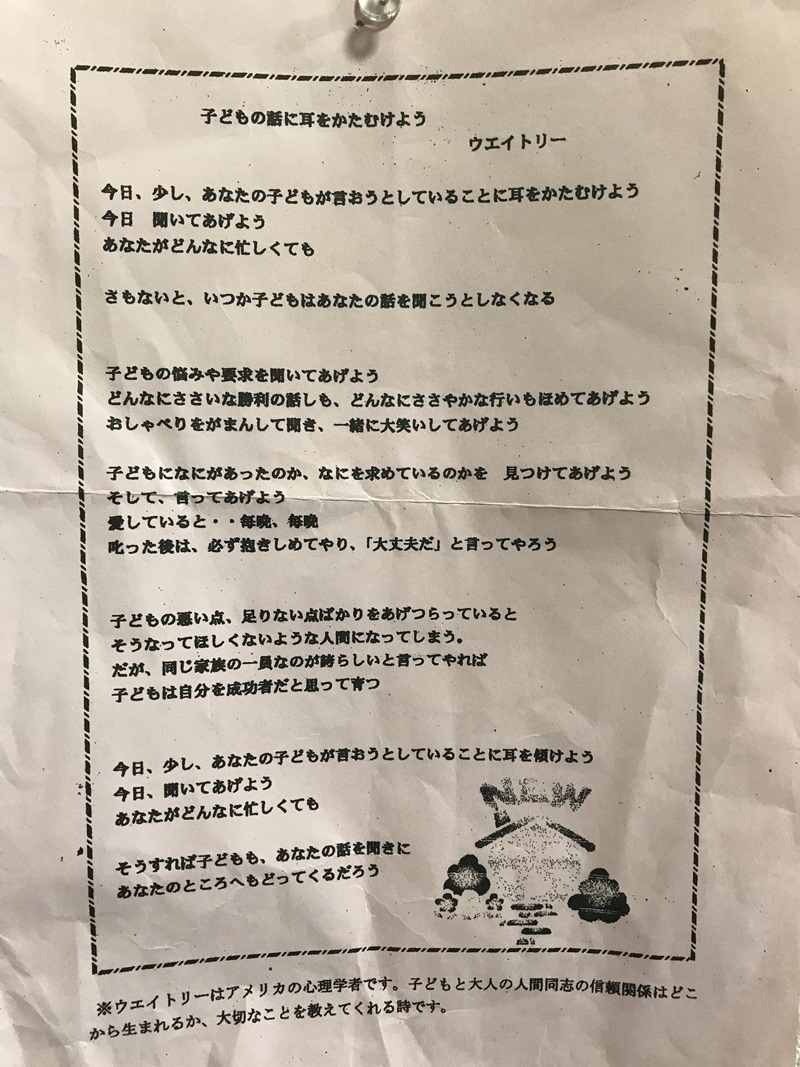 子どもの話に耳をかたむけよう
ウエイトリー
今日、少し、あなたの子どもが言おうとしていることに耳をかたむけよう
今日　聞いてあげよう
あなたがどんなに忙しくても
さもないと、いつか子どもはあなたの話を聞こうとしなくなる
子どもの悩みや要求を聞いてあげよう
どんなにささいな勝利の話しも、どんなにささやかな行いもほめてあげよう
おしゃべりをがまんして聞き、一緒に大笑いしてあげよう
子どもになにがあったのか、なにを求めているのかを　見つけてあげよう
そして、言ってあげよう
愛していると・・毎晩、毎晩
叱った後は、必ず抱きしめてやり、「大丈夫だ」と言ってやろう
子どもの悪い点、足りない点ばかりをあげつらっていると
そうなってほしくないような人間になってしまう。
だが、同じ家族の一員なのが誇らしいと言ってやれば
子どもは自分を成功者だと思って育つ
今日、少し、あなたの子どもが言おうとしていることに耳を傾けよう
今日、聞いてあげよう
あなたがどんなに忙しくても
そうすれば子どもも、あなたの話を聞きに
あなたのところへもどってくるだろう
NEW
※ウエイトリーはアメリカの心理学者です。子どもと大人の人間同志の信頼関係はどこ
から生まれるか、大切なことを教えてくれる詩です。